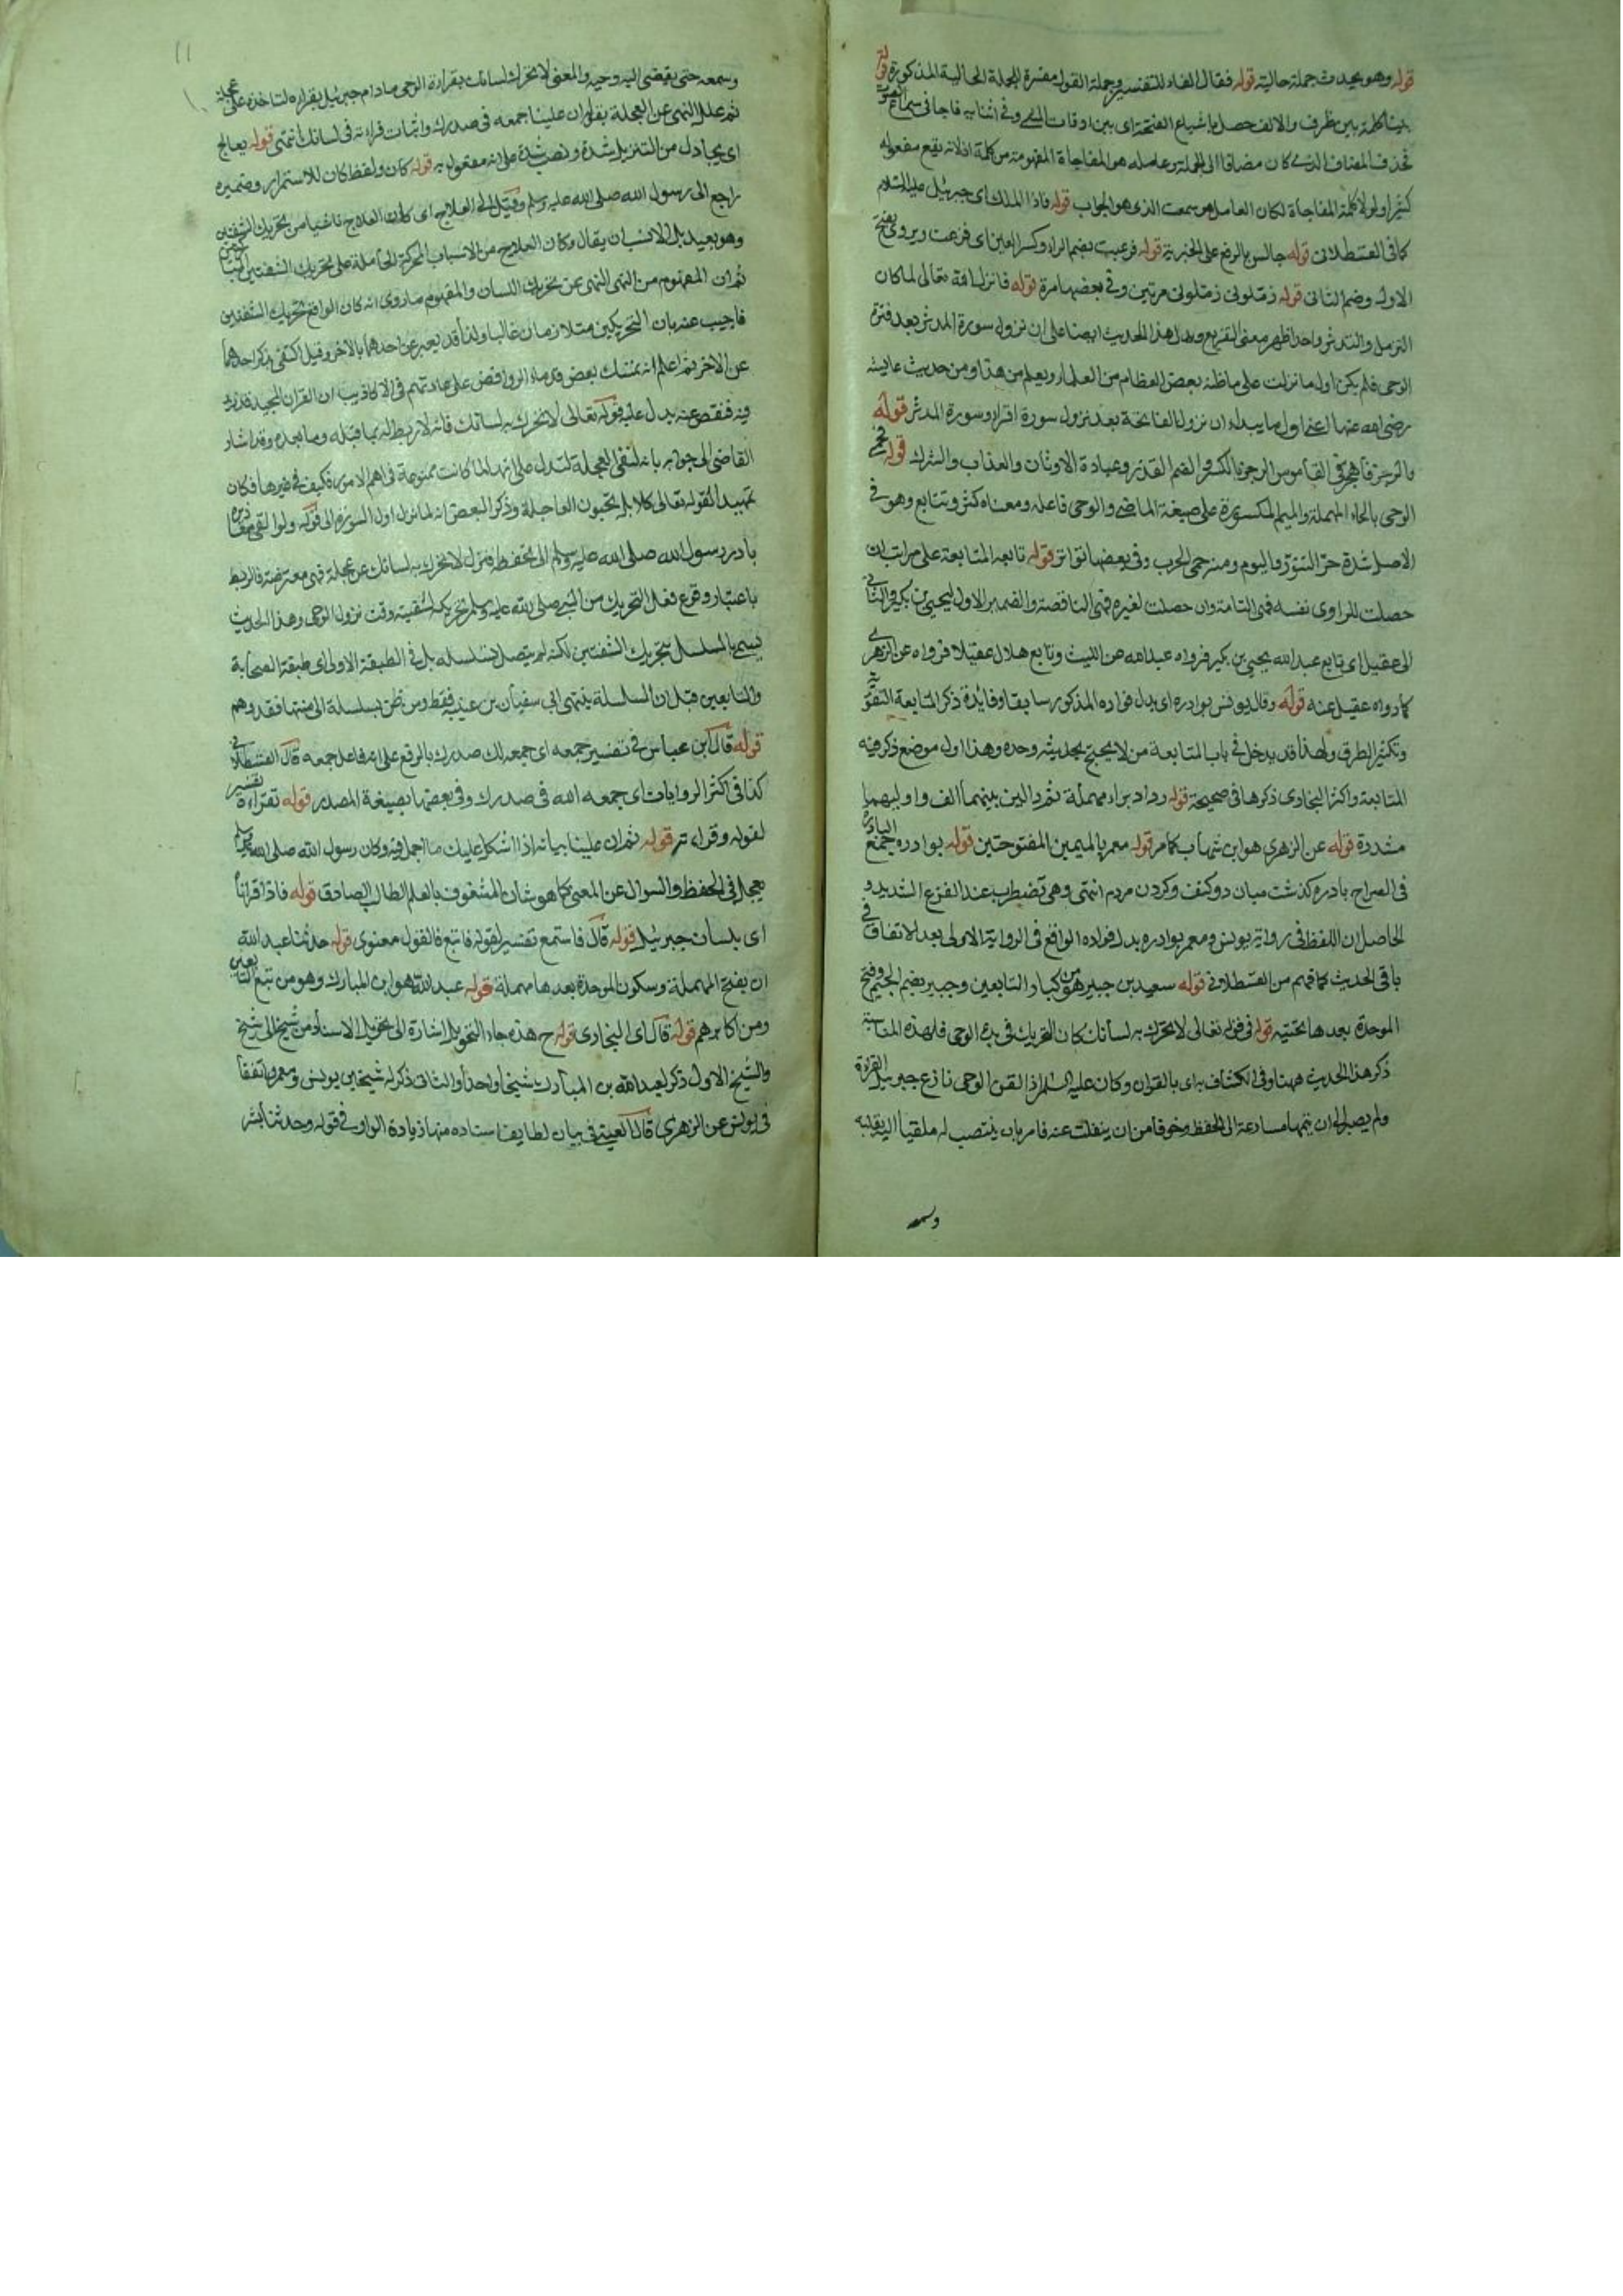 قوله وهو يحدث جملة حالية قوله فقال الفاء للتفسير وجملة القول مفسرة للجملة الحالية المذكورة قوله
بينا كلمة بين ظرف والالف حصل باشباع الفتحة اى بين اوقات المشى وفى اثنايه فاجانى سماع الصوت
فحذف المضاف الذى كان مضافا الى الجملة وعامله هو المفاجاة المفهومة من كلمة اذ لانه يقع مفعوله
كثيرا ولولا كلمة المفاجاة لكان العامل هو سمعت الذى هو الجواب قوله فاذا الملك اى جبرئيل عليه السلام
كما فى القسطلانى قوله جالس بالرفع على الخبرية قوله فرعبت بضم الراء وكسر العين اى فزعت ويروى بفتح
الاول وضم الثانى قوله زملونى زملونى مرتين وفى بعضها مرة قوله فانزل الله تعالى لما كان
التزمل والتدثر واحدا ظهر معنى التفريع ويدل هذا الحديث ايضا على ان نزول سورة المدثر بعد فترة
الوحى فلم يكن اول ما نزلت على ما ظنه بعض العظام من العلماء ويعلم من هذا ومن حديث عايشه
رضى الله عنها اعنى اول ما يبدء ان نزول الفاتحة بعد نزول سورة اقرا وسورة المدثر قوله
والرجز فاهجر فى القاموس الرجز بالكسر والضم القذر وعبادة الاوثان والعذاب والشرك قوله فحمى
الوحى بالحاء المهملة والميم المكسورة على صيغة الماضى والوحى فاعله ومعناه كثر وتتابع وهو فى
الاصل شدة حر التنور واليوم ومنه حمى الحرب وفى بعضها تواتر قوله تابعه المتابعة على مراتب ان
حصلت للراوى نفسه فهى التامة وان حصلت لغيره فهى الناقصة والضمير الاول ليحيى بن بكير والثانى
الى عقيل اى تابع عبد الله يحيى بن بكير فرواه عبد الله عن الليث وتابع هلال عقيلا فرواه عن الزهرى
كما رواه عقيل عنه قوله وقال يونس بوادره اى بدل فواده المذكور سابقا وفايدة ذكر المتابعة التقوية
وتكثير الطرق ولهذا قد يدخل فى باب المتابعة من لا يحتج بحديثه وحده وهذا اول موضع ذكر فيه
المتابعة واكثر البخارى ذكرها فى صحيحه قوله رداد براء مهملة ثم دالين بينهما الف واوليهما
مشددة قوله عن الزهرى هو ابن شهاب كما مر قوله معمر بالميمين المفتوحتين قوله بوادره جمع البادرة
فى الصراح بادره كذشت ميان دو كتف وكردن مردم انتهى وهى تضطرب عند الفزع الشديد و
الحاصل ان اللفظ فى رواية يونس ومعمر بوادره بدل فواده الواقع فى الرواية الاولى بعد الاتفاق فى
باقى الحديث كما فهم من القسطلانى قوله سعيد بن جبير هو من كبار التابعين وجبير بضم الجيم وفتح
الموحدة بعدها تحتيه قوله فى قوله تعالى لا تحرك به لسانك كان التحريك فى بدء الوحى فلهذه المناسبة
ذكر هذا الحديث ههنا وفى الكشاف به اى بالقران وكان عليه السلم اذا لقن الوحى نازع جبريل القراءة
ولم يصبر الى ان يتمها مسارعة الى الحفظ وخوفا من ان ينفلت عنه فامر بان ينتصب له ملقيا اليه بقلبه
وسمعه
وسمعه حتى يقضى اليه وحيه والمعنى لا تحرك لسانك بقراءة الوحى ما دام جبرئيل يقراءه لتاخذه على عجلة
ثم علل النهى عن العجلة بقوله ان علينا جمعه فى صدرك واثبات قراءته فى لسانك انتهى قوله يعالج
اى يجادل من التنزيل شدة ونصب شدة على انه مفعول به قوله كان ولفظ كان للاستمرار وضميره
راجع الى رسول الله صلى الله عليه وسلم وقيل الى العلاج اى كان العلاج ناشيا من تحريك الشفتين
وهو بعيد بل الانسب ان يقال وكان العلاج من الاسباب المحركة الحاملة على تحريك الشفتين
ثم ان المفهوم من النهى النهى عن تحريك اللسان والمفهوم مما روى انه كان الواقع تحريك الشفتين
فاجيب عنه بان التحريكين متلازمان غالبا ولذا قد يعبر عن احدهما بالاخر وقيل اكتفى بذكر احدهما
عن الاخر ثم اعلم انه تمسك بعض قدماء الروافض على عادتهم فى الاكاذيب ان القران المجيد قد زيد
فيه فنقص عنه يدل عليه قوله تعالى لا تحرك به لسانك فانه لا ربط له بما قبله وما بعده وقد اشار
القاضى الى جوابه بانه لنفى العجلة لتدل على انها لما كانت ممنوعة فى اهم الامور فكيف فى غيرها فكان
تمهيدا لقوله تعالى كلا بل تحبون العاجلة وذكر البعض انه لما نزل اول السورة الى قوله ولو القى معاذيره
بادر رسول الله صلى الله عليه وسلم الى تحفظه فنزل لا تحرك به لسانك عن عجلة فهى معترضة فالربط
باعتبار وقوع فعل التحريك من النبى صلى الله عليه وسلم تحريكه لشفتيه وقت نزول الوحى وهذا الحديث
يسمى بالمسلسل بتحريك الشفتين لكنه لم يتصل بتسلسله بل فى الطبقة الاولى اى طبقة الصحابة
والتابعين قيل ان السلسلة ينتهى الى سفيان بن عيينه فقط ومن ظن بسلسلة الى منتها فقد وهم
قوله قال ابن عباس فى تفسير جمعه اى جمعه لك صدرك بالرفع على انه فاعل جمعه قال القسطلانى
كذا فى اكثر الروايات اى جمعه الله فى صدرك وفى بعضها بصيغة المصدر قوله تقراءه تفسير
لقوله وقراءته قوله ثم ان علينا بيانه اذا اشكل عليك ما اجمل فيه وكان رسول الله صلى الله عليه وسلم
يعجل فى الحفظ والسوال عن المعنى كما هو شان المشغوف بالعلم الطالب الصادق قوله فاذا قراناه
اى بلسان جبرئيل قوله قال فاستمع تفسير لقوله فاتبع فالقول معنوى قوله حدثنا عبدالله
ان بفتح المهملة وسكون الموحدة بعدها مهملة قوله عبد الله هو ابن المبارك وهو من تبع التابعين
ومن اكابرهم قوله قال اى البخارى قوله ح هذه حاء التحويل اشارة الى تحويل الاسناد من شيخ الى شيخ
والشيخ الاول ذكر لعبد الله بن المبارك شيخا واحدا والثانى ذكر له شيخين يونس ومعمر واتفقا
فى يونس عن الزهرى قال العينى فى بيان لطايف اسناده منها زيادة الواو فى قوله وحدثنا بشر